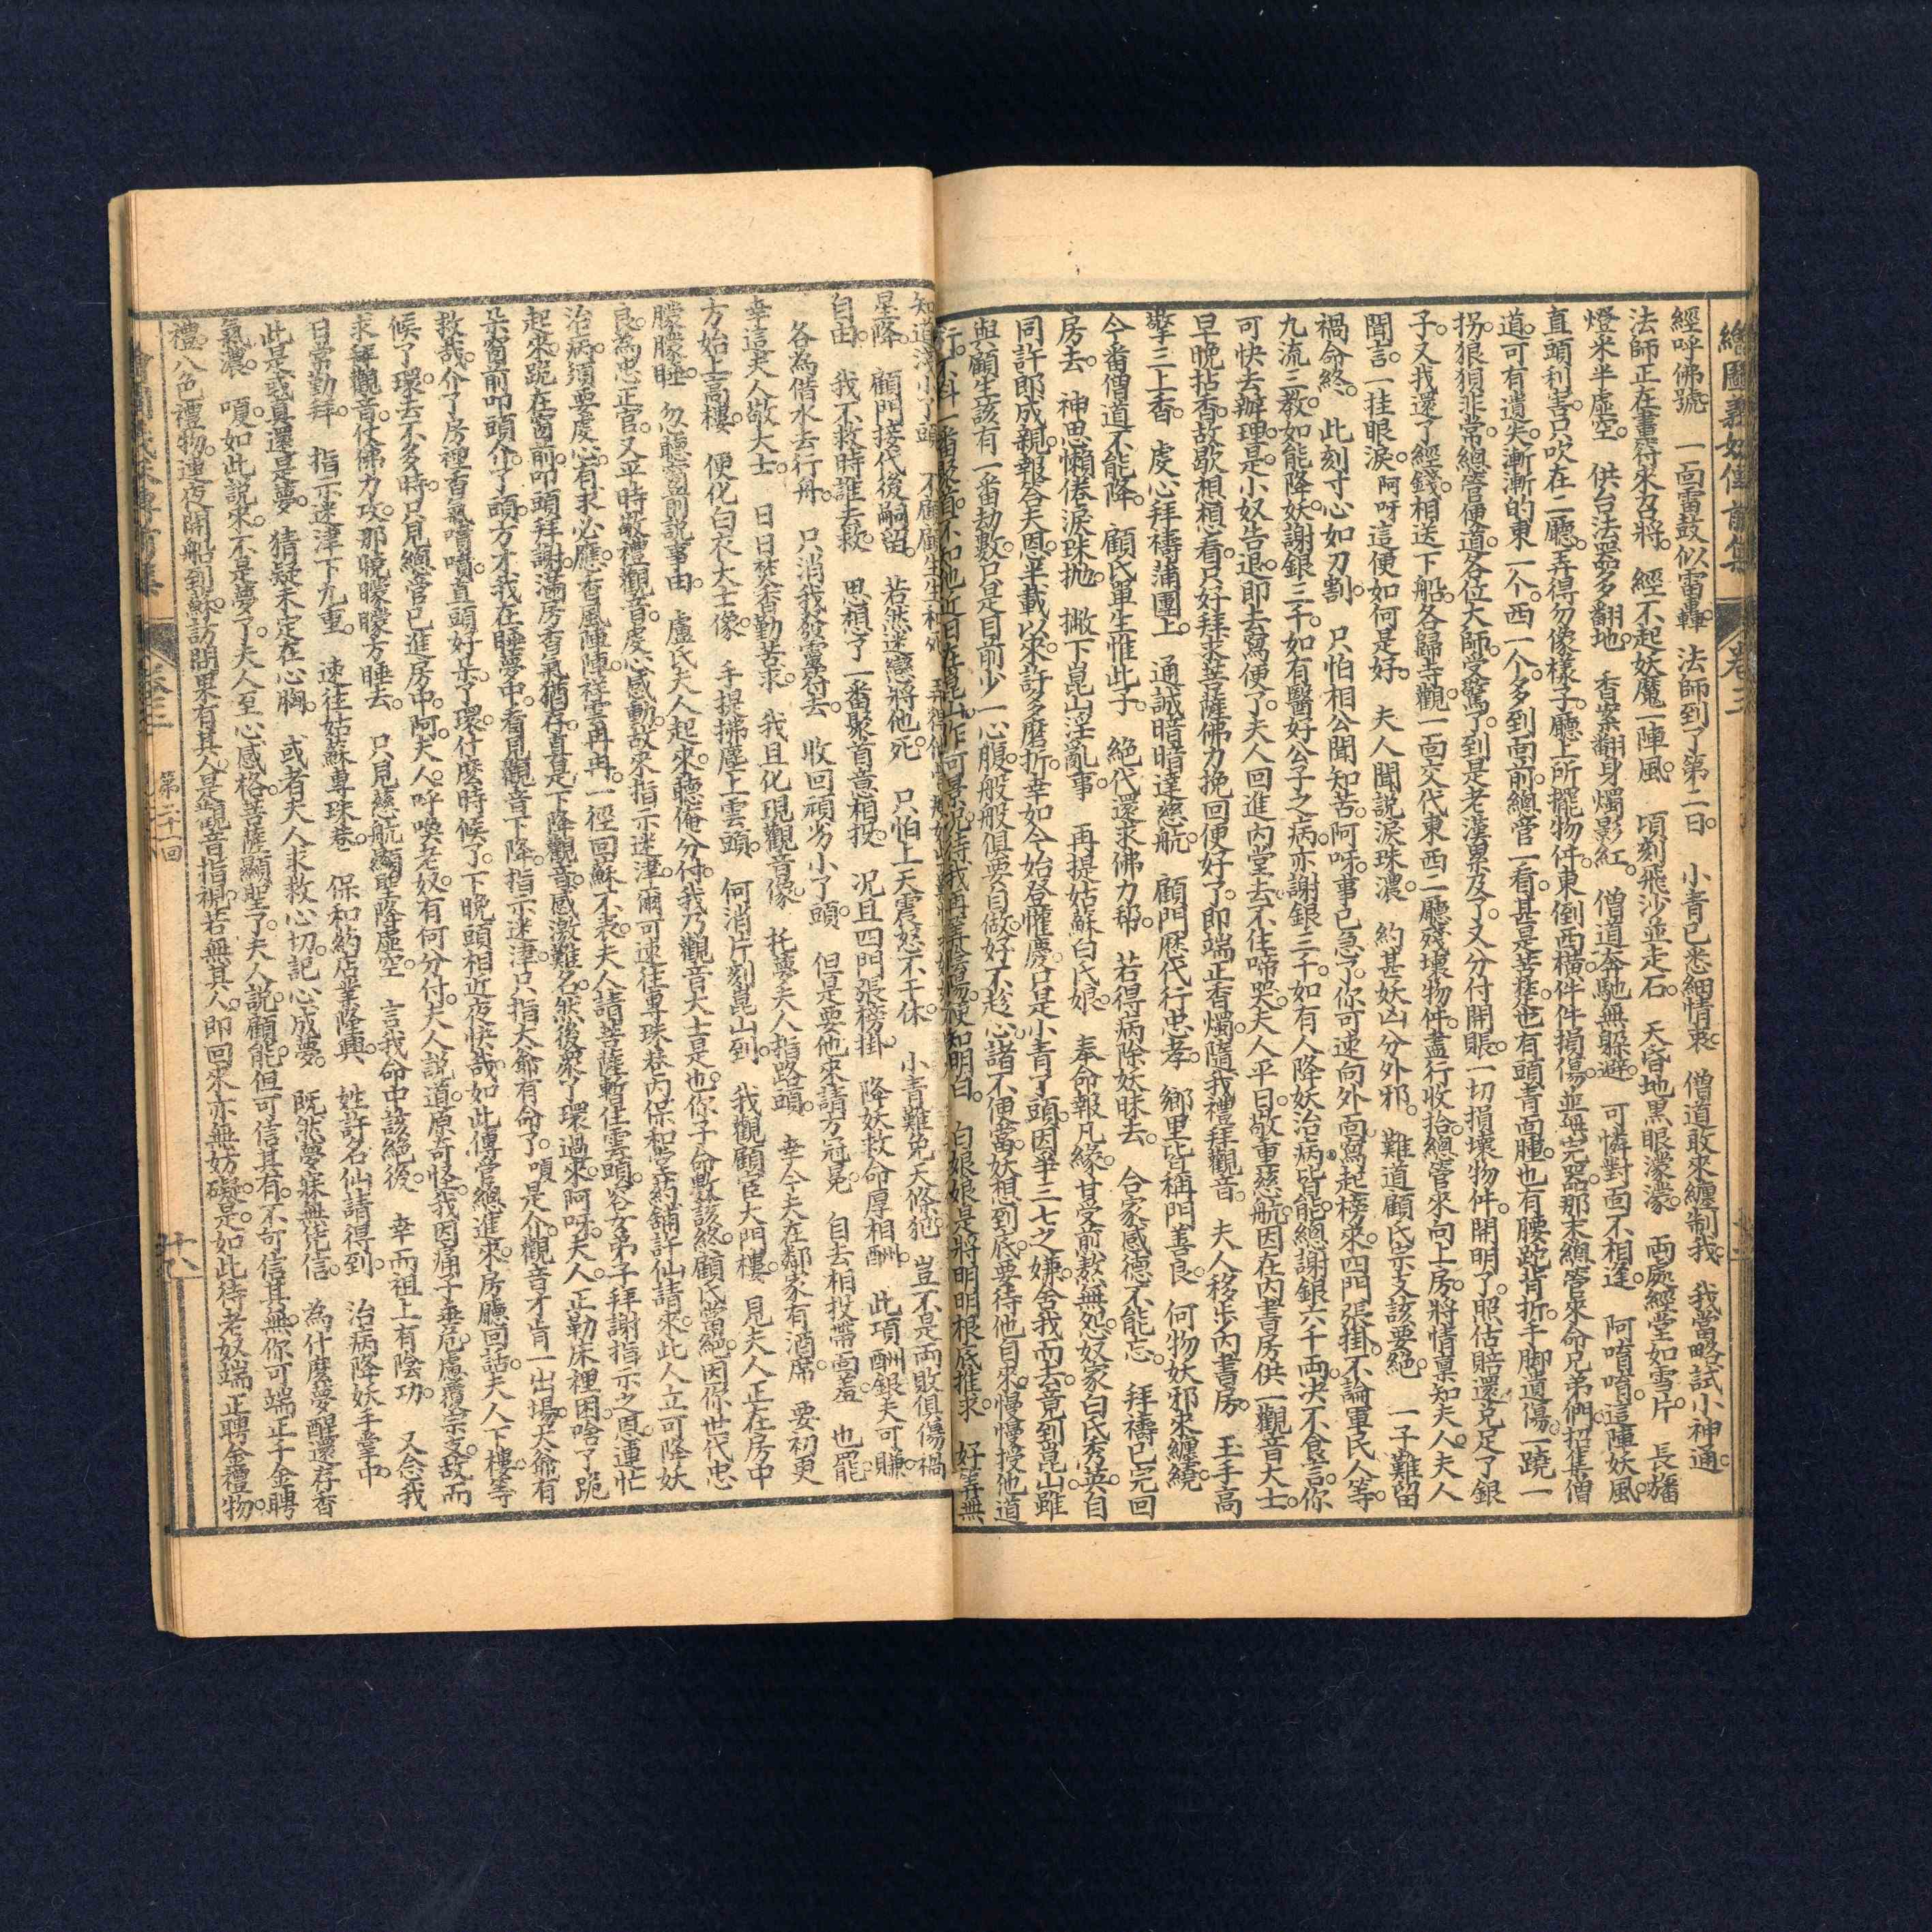 繪圖義妖傳前集 卷三
經呼佛號 一面雷鼓似雷轟 法師到了第二日 小青已悉細情衷 僧道敢來纏制我 我當略試小神通
法師正在書符來召將 經不起妖魔一陣風 頃刻飛沙並走石 天昏地黑眼濛濛 兩處經堂如雪片 長旛
燈米半虛空 供台法器多翻地 香案翻身燭影紅 僧道奔馳無躲避 可憐對面不相逢 阿唷唷這陣妖風
直頭利害只吹在二廳弄得勿像樣子廳上所擺物件東倒西橫件件損傷並無完器那末總管來命兄弟們招集僧
道可有遺失漸漸的東一个西一个多到面前總管一看甚是苦惱也有頭青面腫也有腰跎背折手脚遺傷一蹺一
拐狼狽非常總管便道各位大師受驚了到是老漢累及了又分付開賬一切損壞物件開明了照估賠還兑足了銀
子又我還了經錢相送下船各歸寺觀一面交代東西二廳殘壞物件盡行收拾總管來向上房將情禀知夫人夫人
聞言一挂眼淚阿呀這便如何是好 夫人聞說淚珠濃 約甚妖凶分外邪 難道顧氏宗支該要絕 一子難留
禍命終 此刻寸心如刀割 只怕相公聞知苦阿呀事已急了你可速向外面寫起榜來四門張掛不論軍民人等
九流三教如能降妖謝銀三千如有醫好公子之病亦謝銀三千如有人降妖治病皆能總謝銀六千兩決不食言你
可快去辦理是小奴告退即去寫便了夫人回進內堂去不住啼哭夫人平日敬重慈航因在內書房供一觀音大士
早晚拈香故歇想想看只好拜求菩薩佛力挽回便好了即端正香燭隨我禮拜觀音 夫人移步內書房 玉手高
擎三上香 虔心拜禱蒲團上 通誠暗暗達慈航 顧門歷代行忠孝 鄉里皆稱門善良 何物妖邪來纏繞
今番僧道不能降 顧氏單生惟此子 絕代還求佛力帮 若得病除妖昧去 合家感德不能忘 拜禱已完回
房去 神思懶倦淚珠抛 撇下崑山淫亂事 再提姑蘇白氏娘 奉命報凡緣甘受前熬無怨奴家白氏秀英自
同許郎成親報合天恩半載以來許多磨折幸如今始登懽慶只是小青丫頭因爭三七之嫌舍我而去竟到崑山雖
與顧生該有一番劫數只是目前少一心腹般般俱要自做好不趁心諸不便當妖想到底要待他自來慢慢授他道
行
知道
星降 顧門接代後嗣留 若然迷戀將他死 只怕上天震怒不干休 小青難免天條犯 豈不是兩敗俱傷禍
自由 我不救時誰去救 思想了一番聚首意相投 况且四門張榜掛 降妖救命厚相酬 此項酬銀夫可賺
各為借水去行舟 只消我發靈符去 收回頑劣小丫頭 但是要他來請方冠冕 自去相投帶面羞 也罷
幸這夫人敬大士 日日焚香勤苦求 我且化現觀音像 托夢夫人指路頭 幸今夫在鄰家有酒席 要初更
方始上高樓 便化白衣大士像 手提拂塵上雲頭 何消片刻崑山到 我觀顧宦大門樓 見夫人正在房中
朦朦睡 忽聽窗前說事由 盧氏夫人起來聽俺分付我乃觀音大士是也你子命數該終顧氏當絕因你世代忠
良為忠正官又平時敬禮觀音虔心感動故來指示迷津爾可速往專珠巷內保和堂药舖許仙請來此人立可降妖
治病須要虔心有求必應香風陣陣祥雲再再一徑回蘇不表夫人請菩薩暫住雲頭容女弟子拜謝指示之恩連忙
起來跪在窗前叩頭拜謝滿房香氣猶存真是下降觀音感激難名然後衆丫環過來阿呀夫人正勒床裡困啥了跪
朵窗前叩頭介了頭方才我在睡夢中看見觀音下降指示迷津只指大爺有命了嗄是介觀音才肯一出場大爺有
救哉介了房裡香氣噴噴直頭好朵了環什麽時候了下晚頭相近夜快哉如此傳當總進來房廳回話夫人下樓等
候了環去不多時只見總管已進房中阿夫人呼喚老奴有何分付夫人說道原奇怪我因痛子垂危慮覆宗支故而
求拜觀音仗佛力攻那曉朦朦方睡去 只見慈航顯聖降虛空 言我命中該絕後 幸而祖上有陰功 又念我
日常勤拜 指示迷津下九重 速往姑蘇專珠巷 保和葯店業隆興 姓許名仙請得到 治病降妖手掌中
此是惑真還是夢 猜疑未定在心胸 或者夫人求救心切記心成夢 既然夢寐無佗信 為什麽夢醒還存香
氣濃 嗄如此說來不是夢了夫人至心感格菩薩顯聖了夫人說顧能但可信其有不可信其無你可端正千金聘
禮八色禮物連夜開船到蘇訪問果有其人是觀音指視若無其人即回來亦無妨礙是如此待老奴端正聘金禮物
第二十一回
卷三